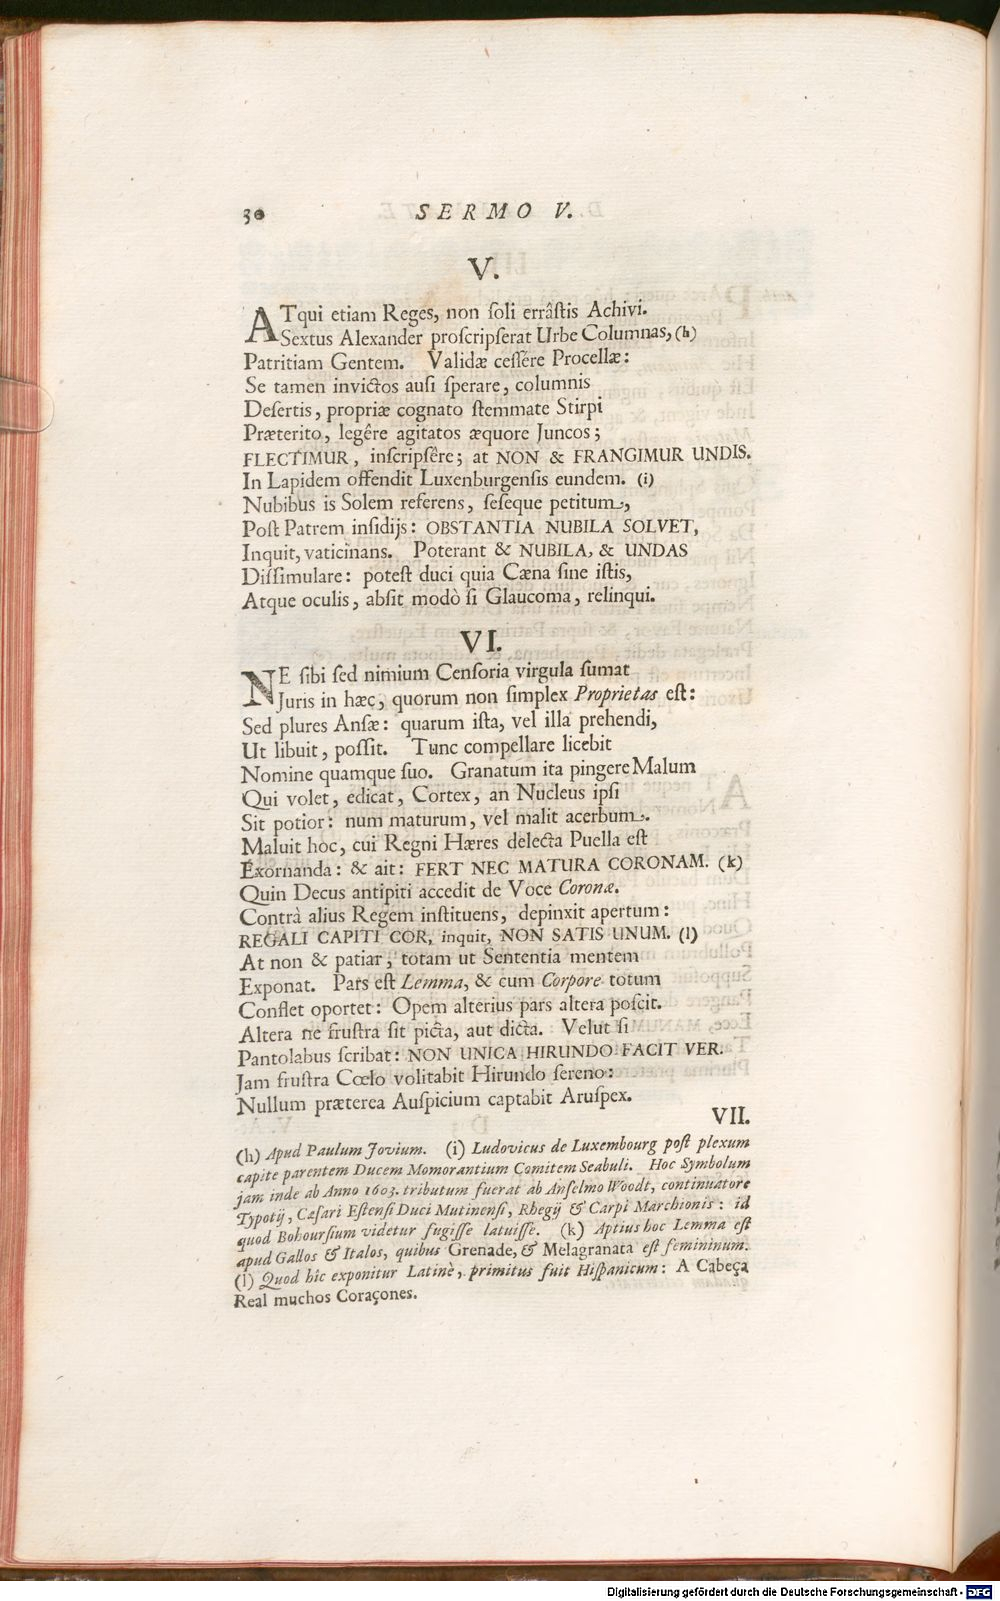 30 SERMO V.
V.
ATqui etiam Reges, non ſoli errâſtis Achivi.
Sextus Alexander proſcripſerat Urbe Columnas, (h)
Patritiam Gentem. Validæ ceſſére Procellæ:
Se tamen invictos auſi ſperare, columnis
Deſertis, propriæ cognato ſtemmate Stirpi
Præterito, legêre agitatos æquore Juncos;
FLECTIMUR, inſcripſêre; at NON & FRANGIMUR UNDIS.
In Lapidem offendit Luxenburgenſis eundem. (i)
Nubibus is Solem referens, ſeſeque petitum,
Poſt Patrem inſidijs: OBSTANTIA NUBILA SOLVET,
Inquit, vaticinans. Poterant & NUBILA, & UNDAS
Diſſimulare: poteſt duci quia Cæna ſine iſtis,
Atque oculis, abſit modò ſi Glaucoma, relinqui.
VI.
NE ſibi ſed nimium Cenſoria virgula ſumat
Juris in hæc, quorum non ſimplex Proprietas eſt:
Sed plures Anſæ: quarum iſta, vel illa prehendi,
Ut libuit, poſſit. Tunc compellare licebit
Nomine quamque ſuo. Granatum ita pingere Malum
Qui volet, edicat, Cortex, an Nucleus ipſi
Sit potior: num maturum, vel malit acerbum.
Maluit hoc, cui Regni Hæres delecta Puella eſt
Exornanda: & ait: FERT NEC MATURA CORONAM. (k)
Quin Decus antipiti accedit de Voce Coronæ.
Contrà alius Regem inſtituens, depinxit apertum:
REGALI CAPITI COR, inquit, NON SATIS UNUM. (l)
At non & patiar, totam ut Sententia mentem
Exponat. Pars eſt Lemma, & cum Corpore totum
Conflet oportet: Opem alterius pars altera poſcit.
Altera ne fruſtra ſit picta, aut dicta. Velut ſi
Pantolabus ſcribat: NON UNICA HIRUNDO FACIT VER.
Jam fruſtra Cœlo volitabit Hirundo ſereno:
Nullum præterea Auſpicium captabit Aruſpex.
VII.
(h) Apud Paulum Jovium. (i) Ludovicus de Luxembourg poſt plexum
capite parentem Ducem Momorantium Comitem Seabuli. Hoc Symbolum
jam inde ab Anno 1603. tributum fuerat ab Anſelmo Woodt, continuatore
Typotij, Cæſari Eſtenſi Duci Mutinenſi, Rhegij & Carpi Marchionis: id
quod Bohourſium videtur fugiſſe latuiſſe. (k) Aptius hoc Lemma eſt
apud Gallos & Italos, quibus Grenade, & Melagranata eſt femininum.
(l) Quod hic exponitur Latinè, primitus fuit Hiſpanicum: A Cabeça
Real muchos Coraçones.
Digitalisierung gefördert durch die Deutsche Forschungsgemeinschaft - DFG